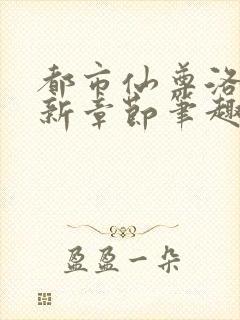 都市仙尊洛
新章节笔趣
盈盈一朵